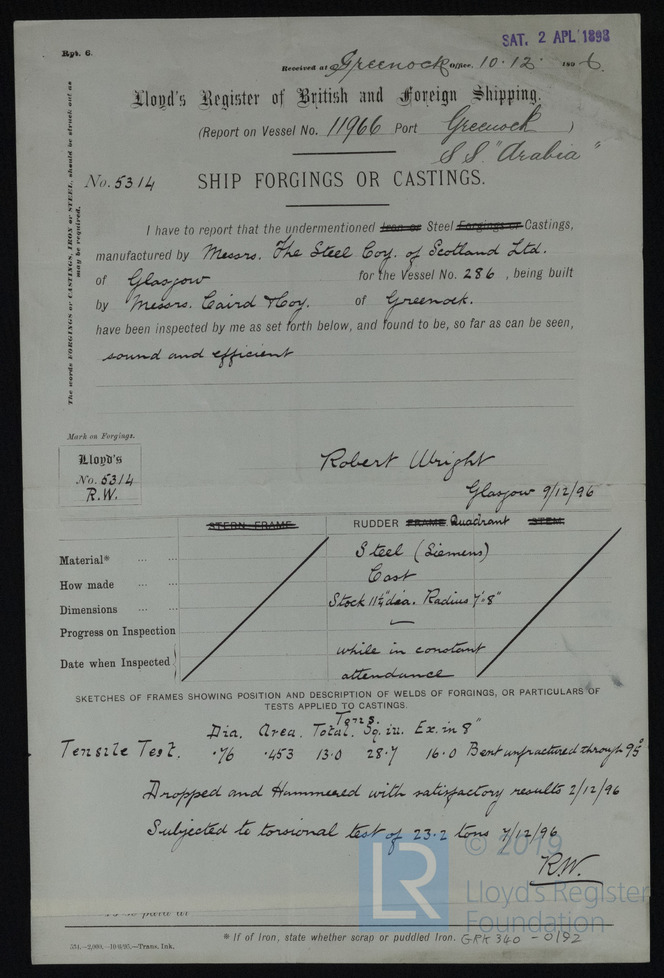 Rpt. 6.
SAT. 2 APL 1898
Received at Greenock Office, 10.12. 1896.
Lloyd's Register of British and Foreign Shipping.
(Report on Vessel No. 11966 Port Greenock )
S.S. "Arabia"
No. 5314 SHIP FORGINGS OR CASTINGS.
The words FORGINGS or CASTINGS, IRON or STEEL, should be struck out as
may be required.
I have to report that the undermentioned Iron or Steel Forgings or Castings,
manufactured by Messrs. The Steel Coy. of Scotland Ltd.
of Glasgow for the Vessel No. 286 , being built
by Messrs. Caird & Coy. of Greenock.
have been inspected by me as set forth below, and found to be, so far as can be seen,
sound and efficient
Mark on Forgings.
Lloyd's
No. 5314
R.W.
Robert Wright
Glasgow 9/12/96
STERN FRAME RUDDER FRAME Quadrant STEM
Material* ... ... Steel (Siemens)
How made ... ... Cast
Dimensions ... ... Stock 11½" dia. Radius 7'.8"
Progress on Inspection
Date when Inspected while in constant
attendance
SKETCHES OF FRAMES SHOWING POSITION AND DESCRIPTION OF WELDS OF FORGINGS, OR PARTICULARS OF
TESTS APPLIED TO CASTINGS.
Tons.
Dia. Area. Total. Sq. in. Ex. in 8"
Tensile Test. .76 .453 13.0 28.7 16.0 Bent unfractured through 95°
Dropped and Hammered with satisfactory results 2/12/96
Subjected to torsional test of 23.2 tons 7/12/96
R.W.
LR
© 2019
Lloyd's Register
Foundation
* If of Iron, state whether scrap or puddled Iron. GRK 340 - 0192
554.—2,000.—10/6/95.—Trans. Ink.